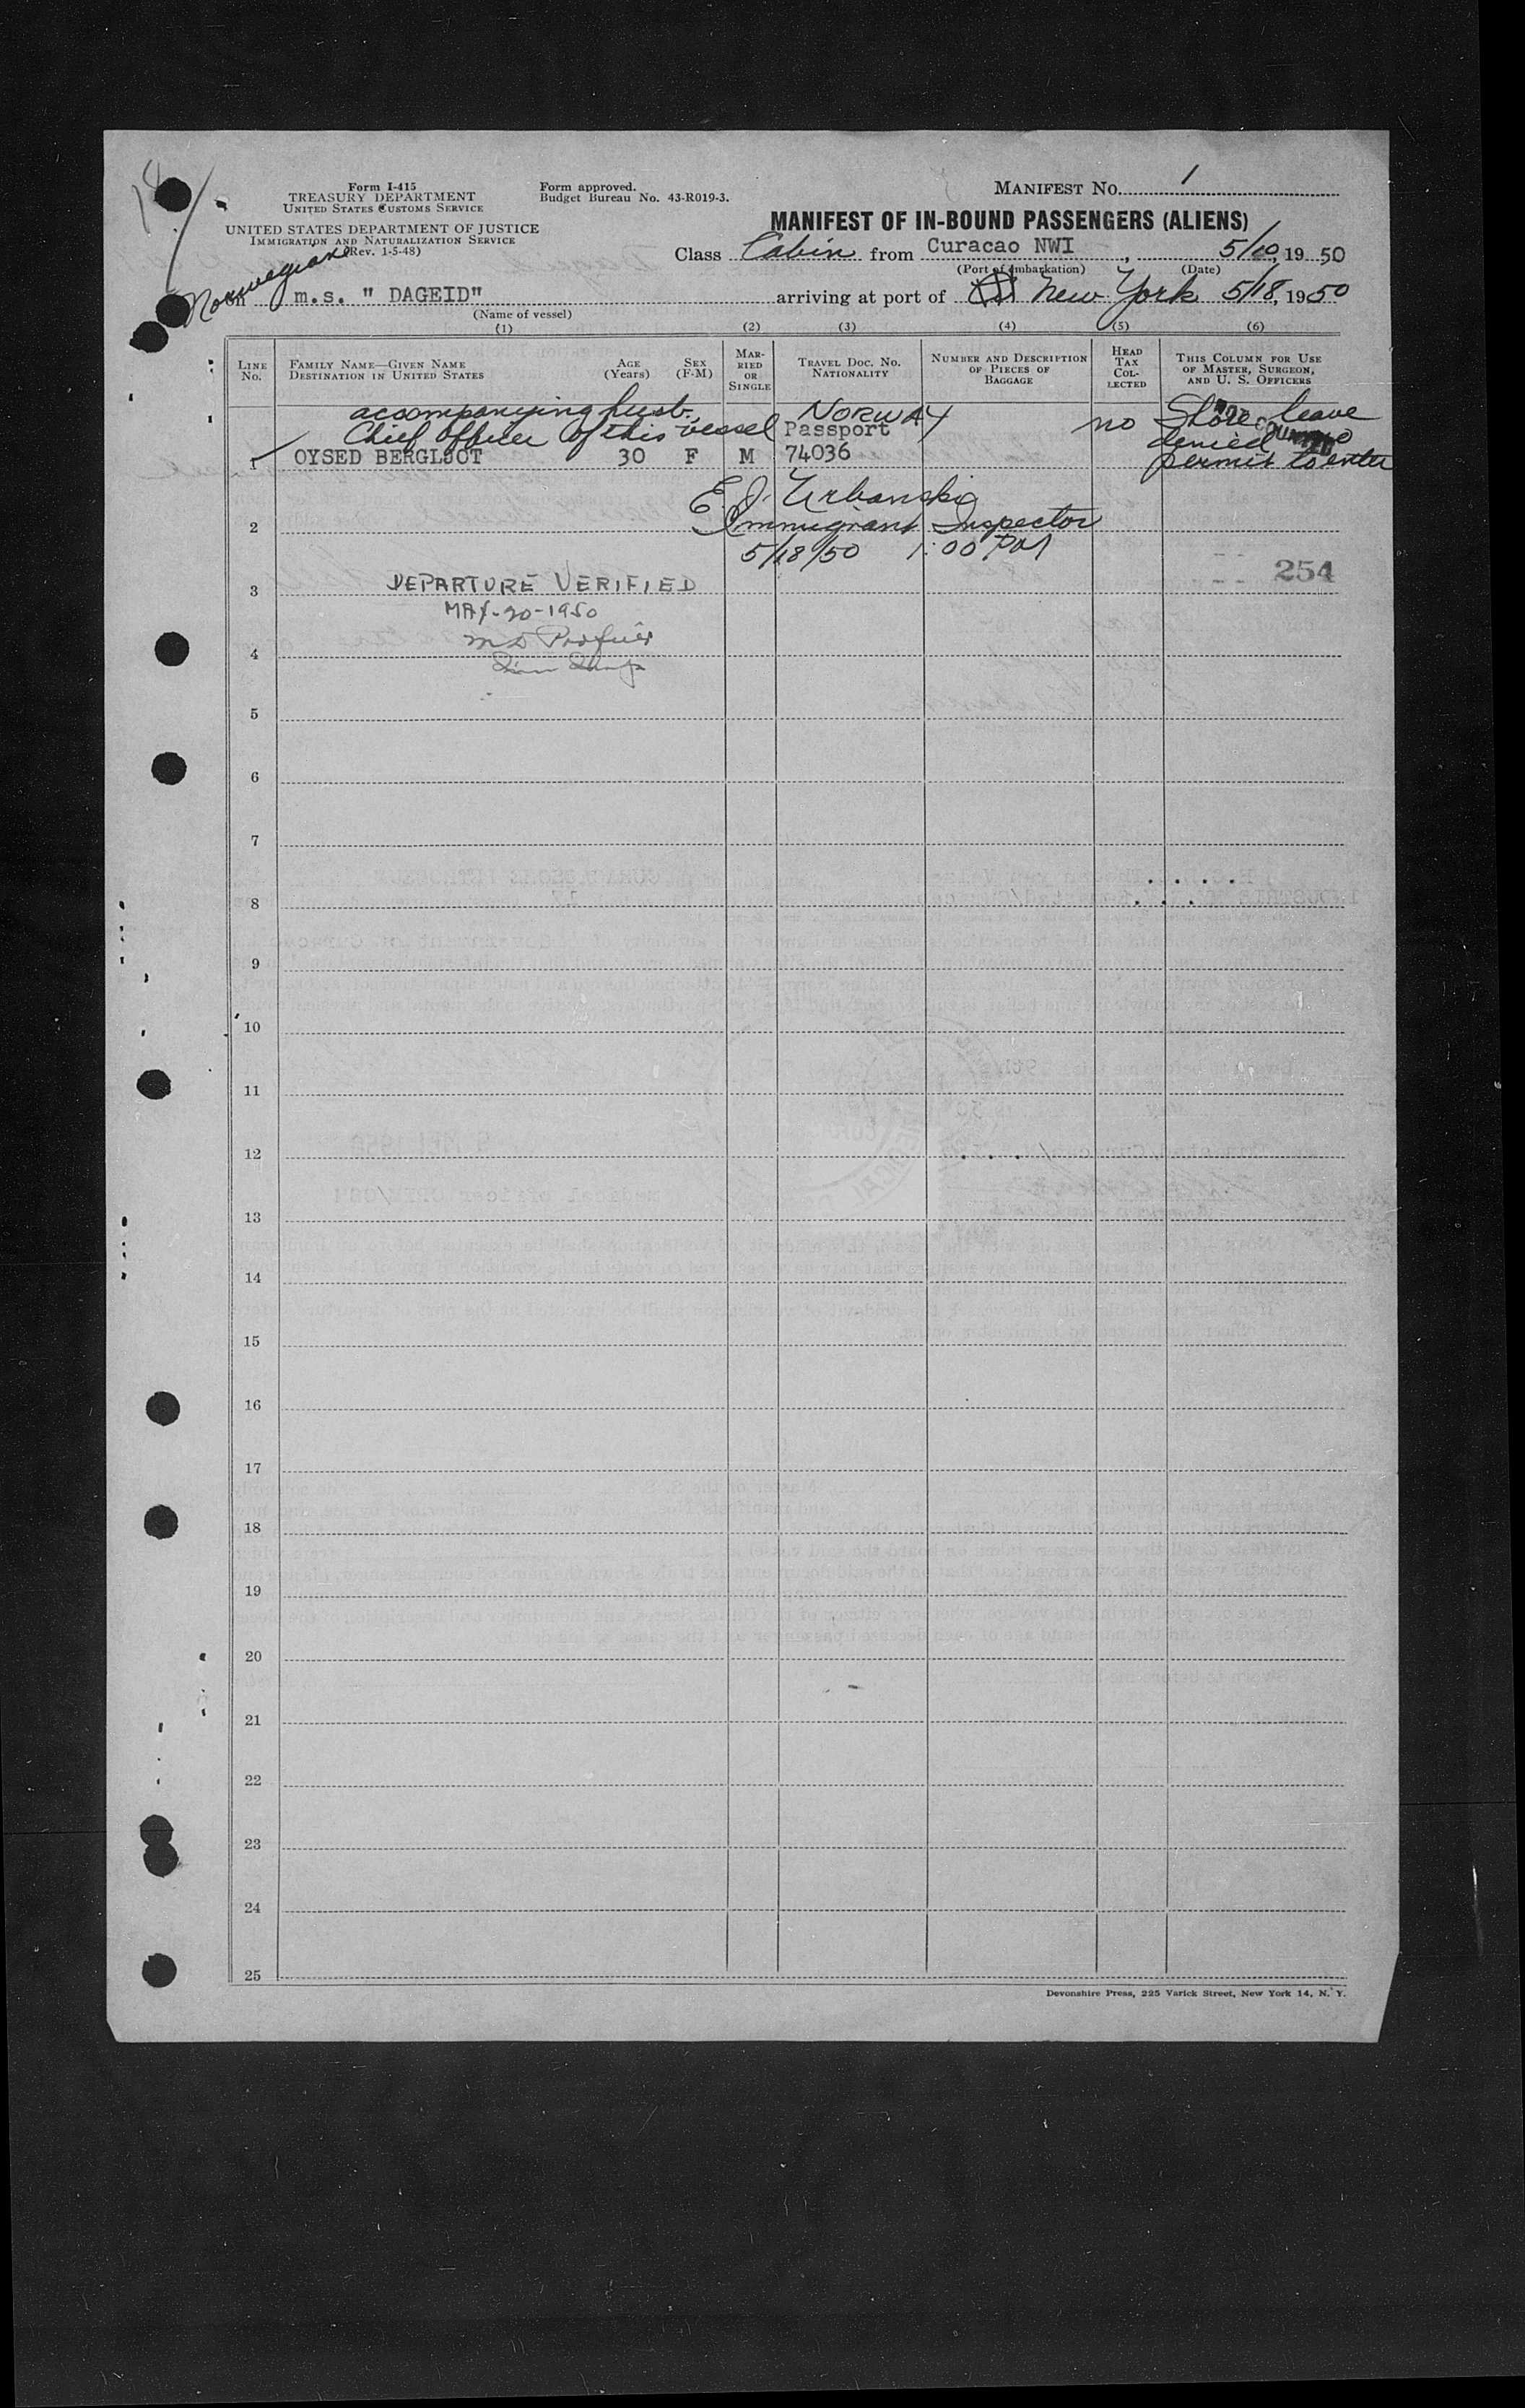 18
Form I-415
TREASURY DEPARTMENT
UNITED STATES CUSTOMS SERVICE
UNITED STATES DEPARTMENT OF JUSTICE
IMMIGRATION AND NATURALIZATION SERVICE
(Rev. 1-5-48)
Form approved.
Budget Bureau No. 43-R019-3.
MANIFEST NO. 1
MANIFEST OF IN-BOUND PASSENGERS (ALIENS)
Class Cabin from Curacao NWI, 5/10, 1950
(Port of embarkation) (Date)
Norwegian
on m.s. " DAGEID" arriving at port of New York 5/18, 1950
(Name of vessel)
(1) (2) (3) (4) (5) (6)
LINE No.
FAMILY NAME—GIVEN NAME
DESTINATION IN UNITED STATES
AGE (Years)
SEX (F-M)
MARRIED OR SINGLE
TRAVEL DOC. NO. NATIONALITY
NUMBER AND DESCRIPTION OF PIECES OF BAGGAGE
HEAD TAX COLLECTED
THIS COLUMN FOR USE OF MASTER, SURGEON, AND U. S. OFFICERS
accompanying husb. NORWAY no Shore leave
Chief officer of this vessel Passport denied no
1 OYSED BERGLJOT 30 F M 74036 permit to enter
E. J. Urbanski
2 Immigrant Inspector
5/18/50 1:00 PM
254
3 DEPARTURE VERIFIED
MAY-20-1950
4
5
6
7
8
9
10
11
12
13
14
15
16
17
18
19
20
21
22
23
24
25
Devonshire Press, 225 Varick Street, New York 14, N. Y.